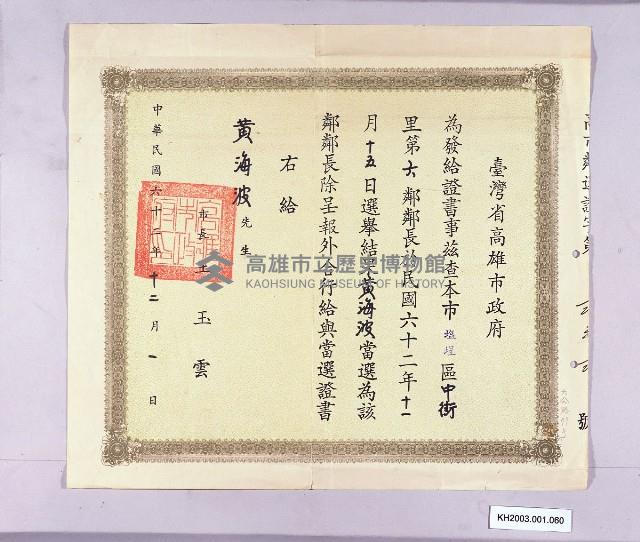 臺灣省高雄市政府
為發給證書事茲查本市鹽埕區中街
里第六鄰鄰長於民國六十二年十一
月十五日選舉結果黃海波當選為該
鄰鄰長除呈報外合行給與當選證書
右給
黃海波先生
市長王玉雲
中華民國六十二年十二月一日
號
高雄市立歷史博物館
KAOHSIUNG MUSEUM OF HISTORY
KH2003.001.060